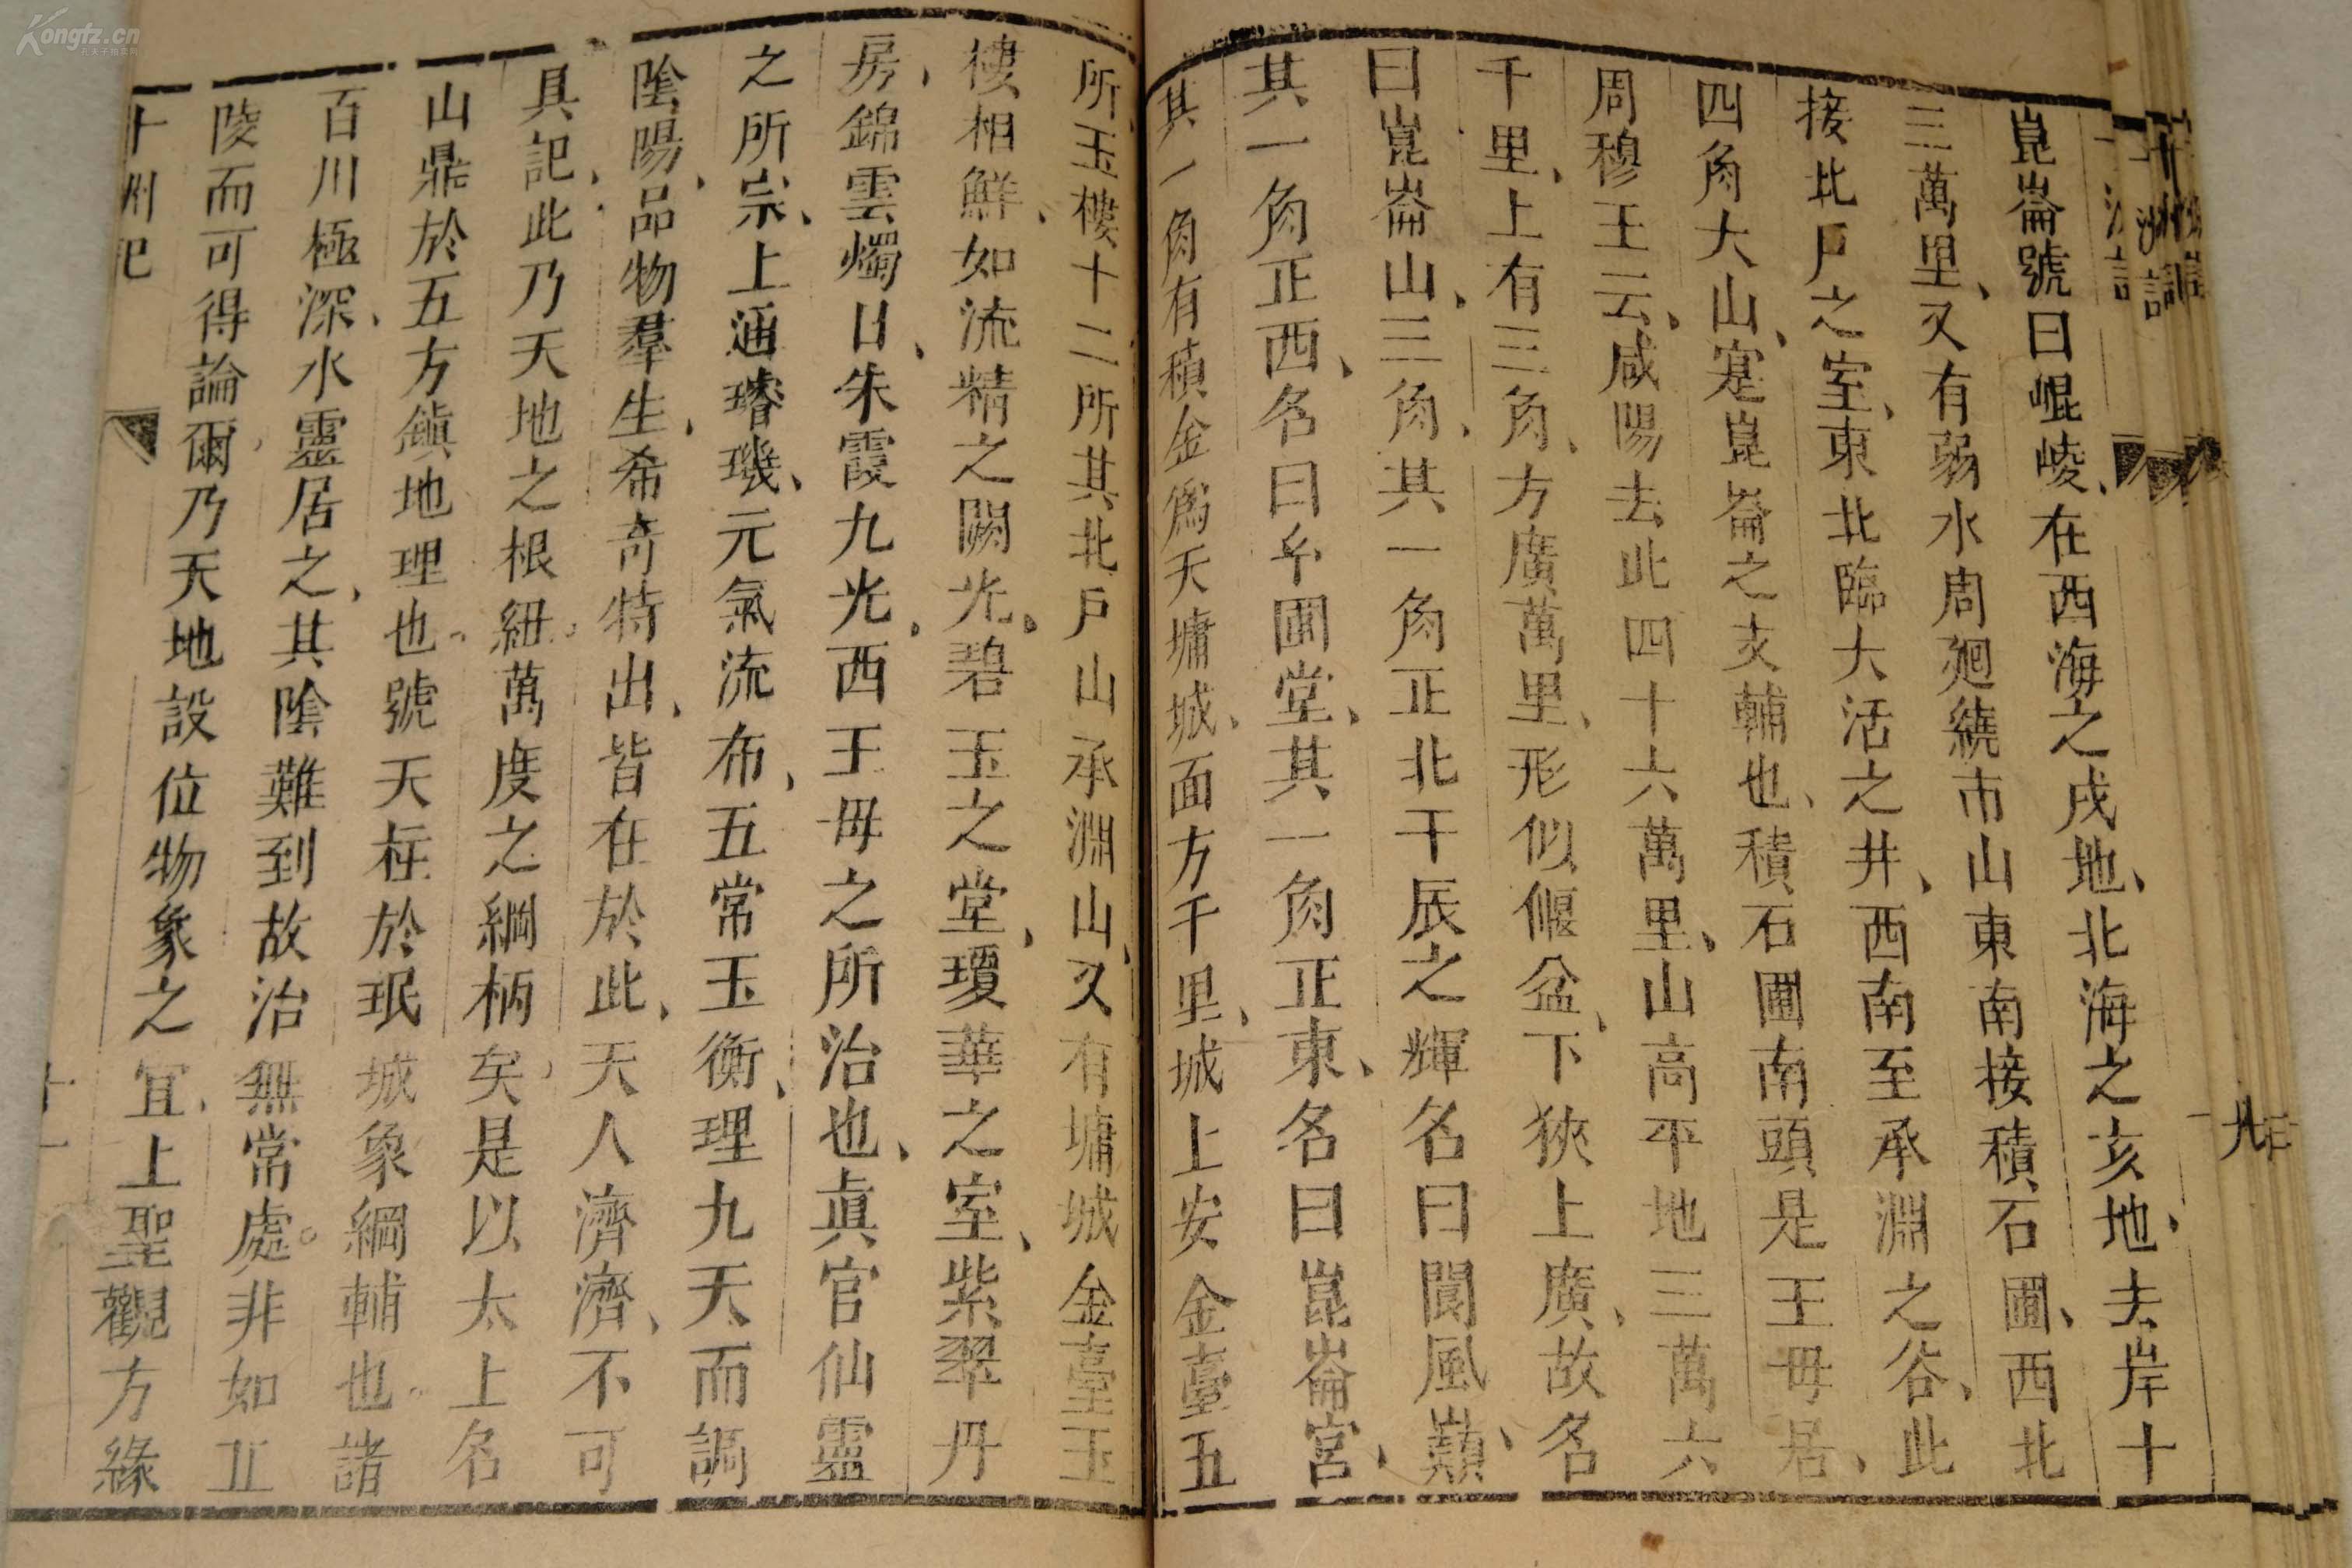 崑崙號曰崐崚、在西海之戌地、北海之亥地、去岸十
三萬里、又有弱水周廻繞帀山東南接積石圃、西北
接北戸之室、東北臨大活之井、西南至承淵之谷、此
四角大山、寔崑崙之支輔也、積石圃南頭是王母居、
周穆王云、咸陽去此四十六萬里、山高平地三萬六
千里、上有三角、方廣萬里、形似偃盆、下狹上廣、故名
曰崑崙山、三角、其一角正北干辰之輝名曰閬風巔、
其一角正西、名曰玄圃堂、其一角正東、名曰崑崙宮、
其一角有積金爲天墉城、面方千里、城上安金臺五
所玉樓十二所其北戸山承淵山、又有墉城金臺玉
樓相鮮、如流精之闕光、碧玉之堂、瓊華之室、紫翠丹
房、錦雲燭日、朱霞九光、西王母之所治也、眞官仙靈
之所宗、上通璿璣、元氣流布、五常玉衡、理九天而調
陰陽、品物羣生、希奇特出、皆在於此、天人濟濟、不可
具記、此乃天地之根紐。萬度之綱柄矣、是以太上名
山鼎於五方鎮地理也。號天柱於珉城象綱輔也。諸
百川極深、水靈居之、其陰難到故治無常處。非如丘
陵而可得論爾、乃天地設位物象之宜、上聖觀方緣
十州記
十一
九
Kongfz.cn